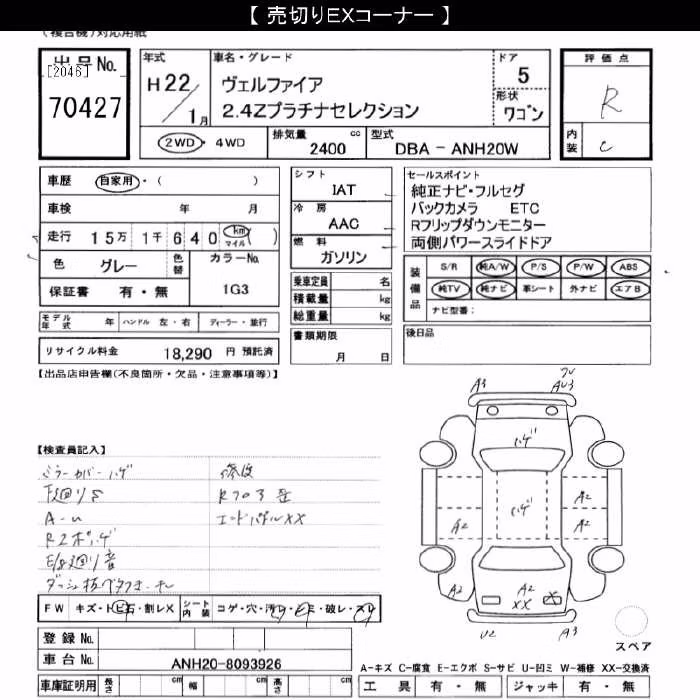 【 売切りEXコーナー 】
(複合機)対応用紙
出品No.
[2046]
70427
年式
H22/1月
車名・グレード
ヴェルファイア
2.4Zプラチナセレクション
ドア
5
形状
ワゴン
評価点
R
内装
C
2WD・4WD
排気量
2400 cc
型式
DBA - ANH20W
車歴 自家用・( )
車検 年 月
走行 15万 1千 640 km マイル ( )
色 グレー
色替
カラーNo.
1G3
保証書 有・無
シフト
IAT
冷房
AAC
燃料
ガソリン
乗車定員 名
積載量 kg
総重量 kg
セールスポイント
純正ナビ・フルセグ
バックカメラ ETC
Rフリップダウンモニター
両側パワースライドドア
装備品
S/R 純A/W P/S P/W ABS
純TV 純ナビ 革シート 外ナビ エアB
ナビ型番:
モデル年式 年 ハンドル 左・右 ディーラー・並行
リサイクル料金 18,290 円 預託済
書類期限
月 日
後日品
【出品店申告欄(不良箇所・欠品・注意事項等)】
【検査員記入】
ミラーカバーハゲ
下廻りS
A-U
E/g廻り音
エンドパネルXX
A3
AU3
ハゲ
ハゲ
A2
A2
A2
A2
A2
XX
U2
A3
FW キズ・トビ石・割レX
シート内装 コゲ・穴・汚レ・シミ・破レ・スレ
登録No.
車台No. ANH20-8093926
車庫証明用 長さ cm 幅 cm 高さ cm
スペア
A-キズ C-腐食 E-エクボ S-サビ U-凹ミ W-補修 XX-交換済
工具 有・無 ジャッキ 有・無